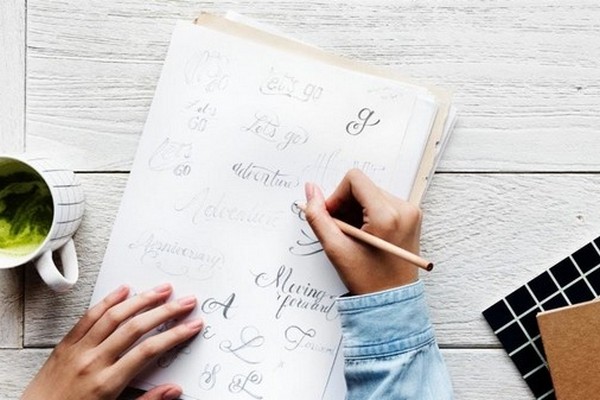 GO
Let's go
g
Let's
GO
Let's go
GO
adventure
Adventure
Anniversary
Moving
forward
A
L
S